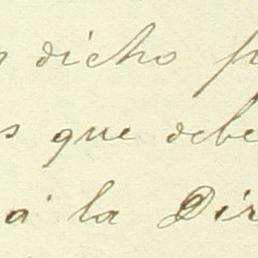 dicho
que debe
á la Dir